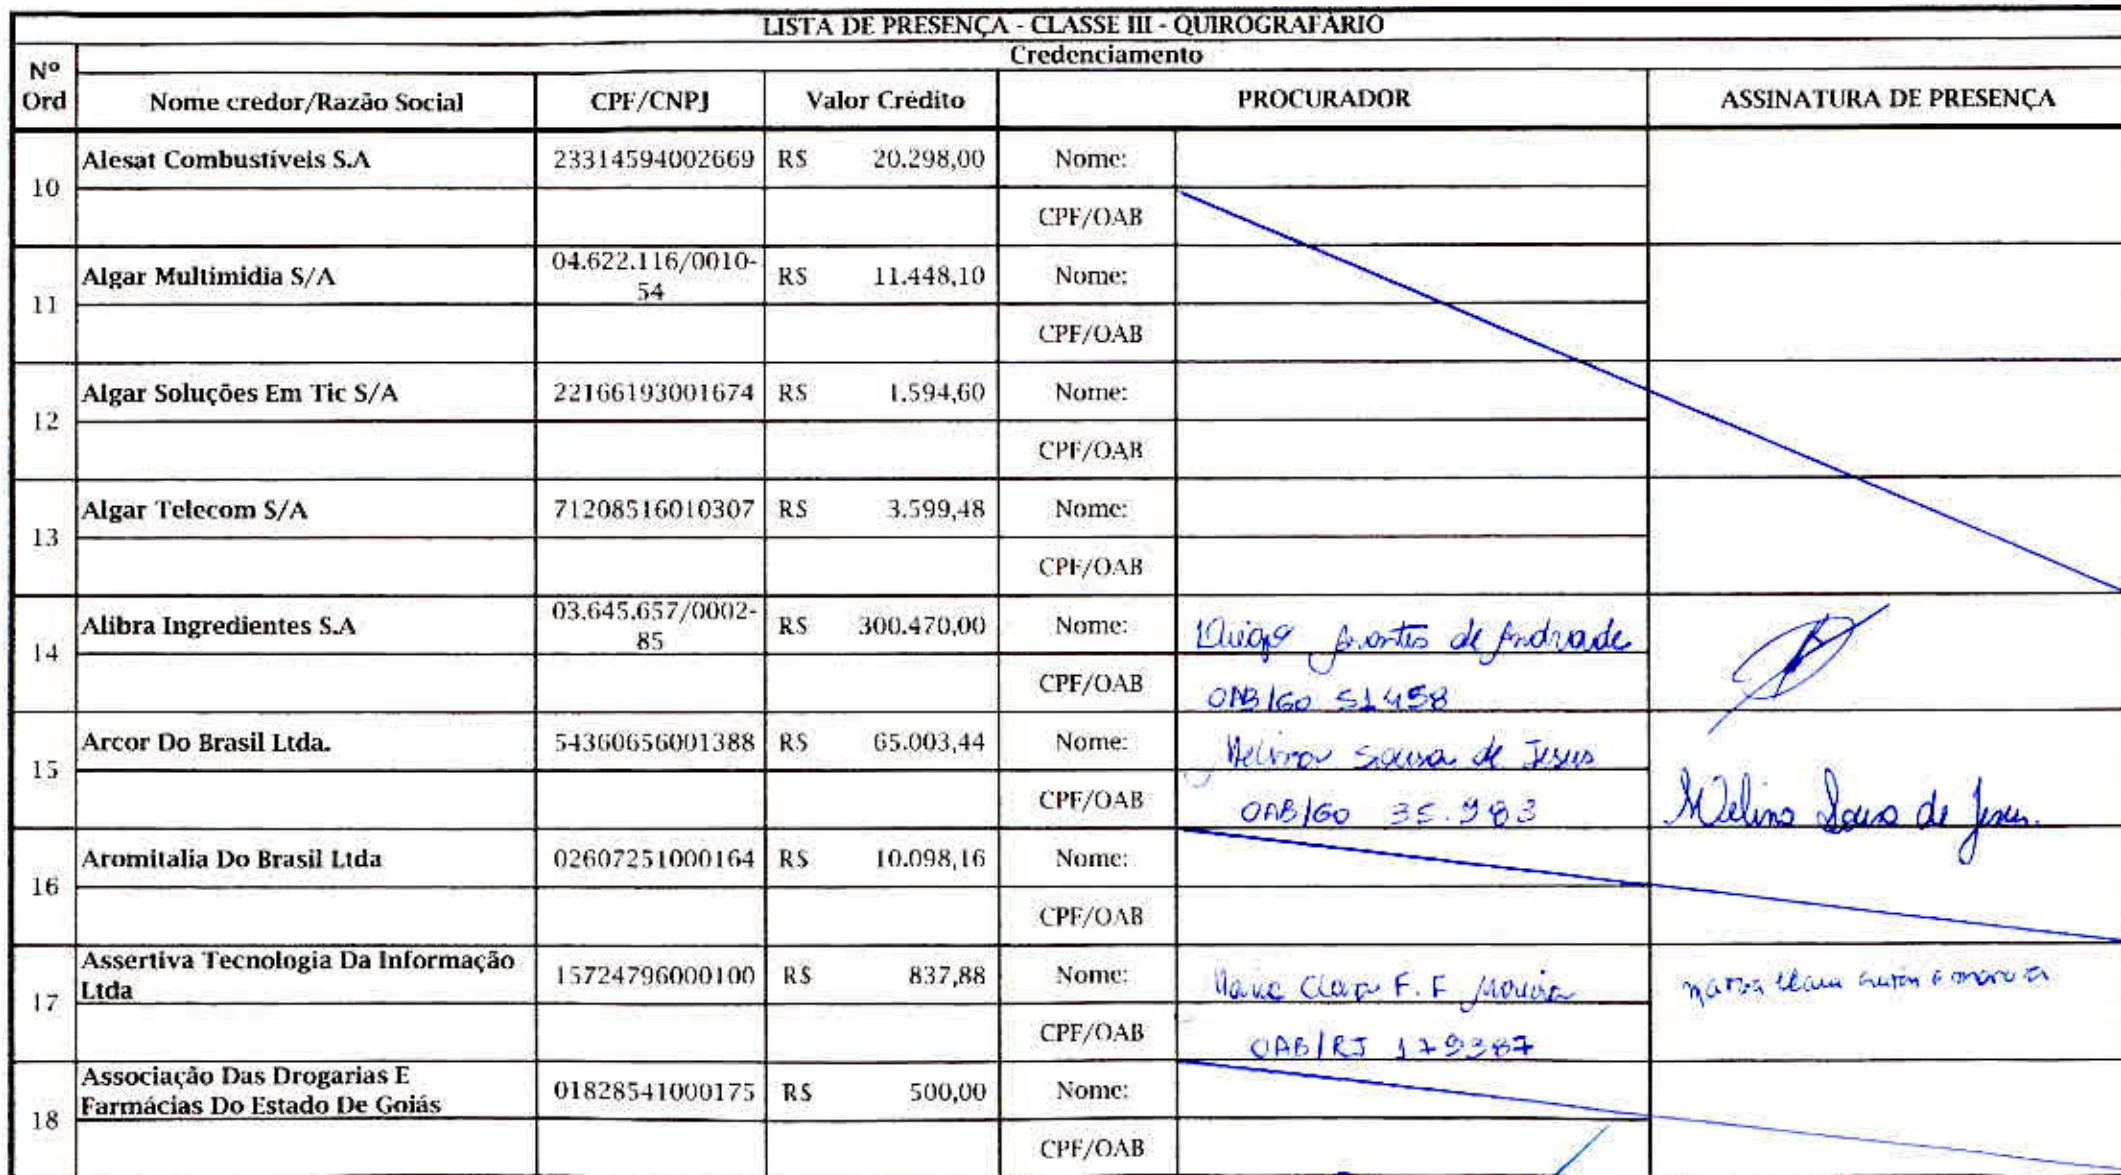 LISTA DE PRESENÇA - CLASSE III - QUIROGRAFÁRIO
Credenciamento
Nº Ord Nome credor/Razão Social CPF/CNPJ Valor Crédito PROCURADOR ASSINATURA DE PRESENÇA
10 Alesat Combustíveis S.A 23314594002669 R$ 20.298,00 Nome:
CPF/OAB
11 Algar Multimidia S/A 04.622.116/0010-54 R$ 11.448,10 Nome:
CPF/OAB
12 Algar Soluções Em Tic S/A 22166193001674 R$ 1.594,60 Nome:
CPF/OAB
13 Algar Telecom S/A 71208516010307 R$ 3.599,48 Nome:
CPF/OAB
14 Alibra Ingredientes S.A 03.645.657/0002-85 R$ 300.470,00 Nome: de Andrade
CPF/OAB OAB/GO 51458
15 Arcor Do Brasil Ltda. 54360656001388 R$ 65.003,44 Nome: Sousa de Jesus
CPF/OAB OAB/GO 35.983 Welina Sousa de Jesus.
16 Aromitalia Do Brasil Ltda 02607251000164 R$ 10.098,16 Nome:
CPF/OAB
17 Assertiva Tecnologia Da Informação Ltda 15724796000100 R$ 837,88 Nome: Maria Clara F. F. Moreira
CPF/OAB OAB/RJ 179387
18 Associação Das Drogarias E Farmácias Do Estado De Goiás 01828541000175 R$ 500,00 Nome:
CPF/OAB